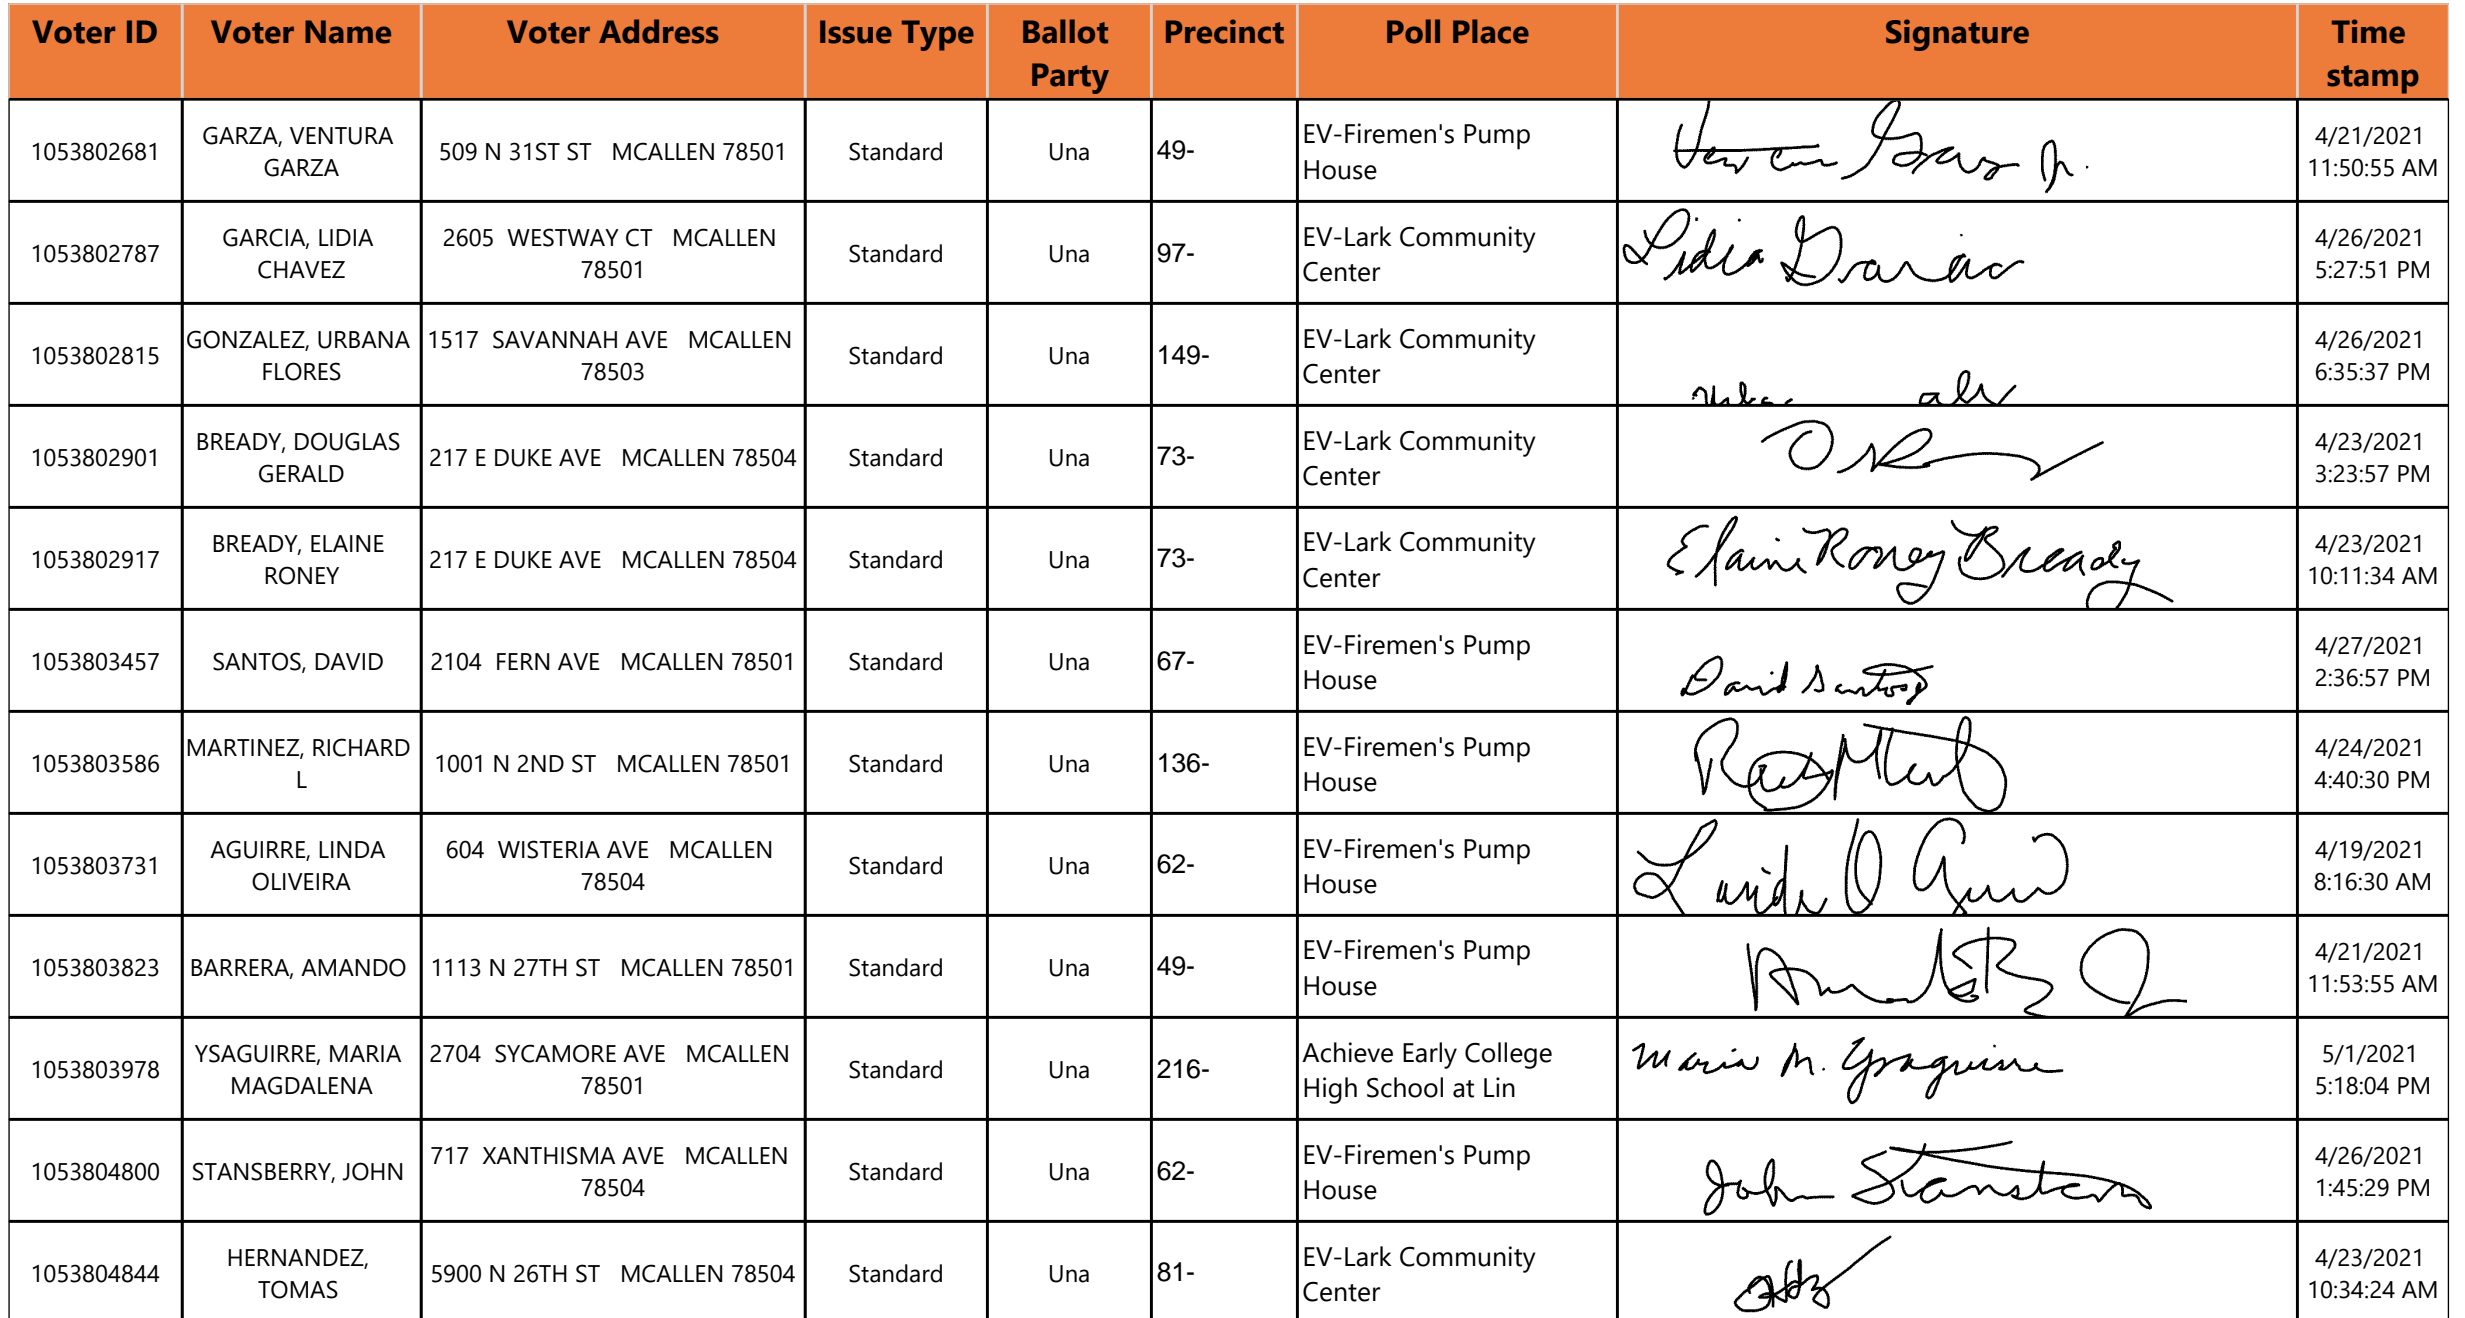 Voter ID Voter Name Voter Address Issue Type Ballot Party Precinct Poll Place Signature Time stamp
1053802681 GARZA, VENTURA GARZA 509 N 31ST ST MCALLEN 78501 Standard Una 49- EV-Firemen's Pump House 4/21/2021 11:50:55 AM
1053802787 GARCIA, LIDIA CHAVEZ 2605 WESTWAY CT MCALLEN 78501 Standard Una 97- EV-Lark Community Center Lidia Garcia 4/26/2021 5:27:51 PM
1053802815 GONZALEZ, URBANA FLORES 1517 SAVANNAH AVE MCALLEN 78503 Standard Una 149- EV-Lark Community Center 4/26/2021 6:35:37 PM
1053802901 BREADY, DOUGLAS GERALD 217 E DUKE AVE MCALLEN 78504 Standard Una 73- EV-Lark Community Center 4/23/2021 3:23:57 PM
1053802917 BREADY, ELAINE RONEY 217 E DUKE AVE MCALLEN 78504 Standard Una 73- EV-Lark Community Center Elaine Roney Bready 4/23/2021 10:11:34 AM
1053803457 SANTOS, DAVID 2104 FERN AVE MCALLEN 78501 Standard Una 67- EV-Firemen's Pump House David Santos 4/27/2021 2:36:57 PM
1053803586 MARTINEZ, RICHARD L 1001 N 2ND ST MCALLEN 78501 Standard Una 136- EV-Firemen's Pump House 4/24/2021 4:40:30 PM
1053803731 AGUIRRE, LINDA OLIVEIRA 604 WISTERIA AVE MCALLEN 78504 Standard Una 62- EV-Firemen's Pump House 4/19/2021 8:16:30 AM
1053803823 BARRERA, AMANDO 1113 N 27TH ST MCALLEN 78501 Standard Una 49- EV-Firemen's Pump House 4/21/2021 11:53:55 AM
1053803978 YSAGUIRRE, MARIA MAGDALENA 2704 SYCAMORE AVE MCALLEN 78501 Standard Una 216- Achieve Early College High School at Lin Maria M. Ysaguirre 5/1/2021 5:18:04 PM
1053804800 STANSBERRY, JOHN 717 XANTHISMA AVE MCALLEN 78504 Standard Una 62- EV-Firemen's Pump House John 4/26/2021 1:45:29 PM
1053804844 HERNANDEZ, TOMAS 5900 N 26TH ST MCALLEN 78504 Standard Una 81- EV-Lark Community Center 4/23/2021 10:34:24 AM